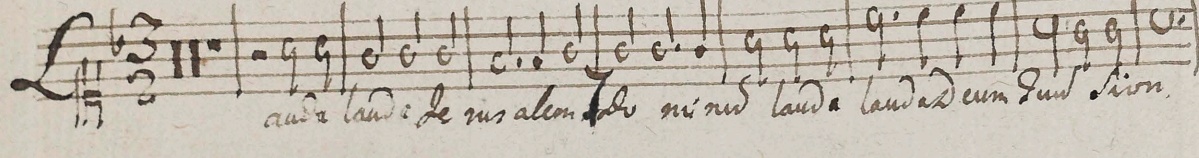 Lauda lauda Jerusalem Do minũ lauda lauda Deum tuũ Sion.